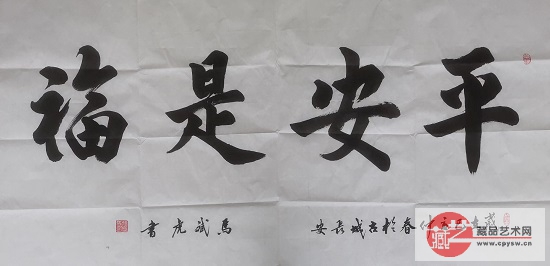 平安是福
春於古城長安
馬斌虎書
藏
藏品艺术网
www.cpysw.cn